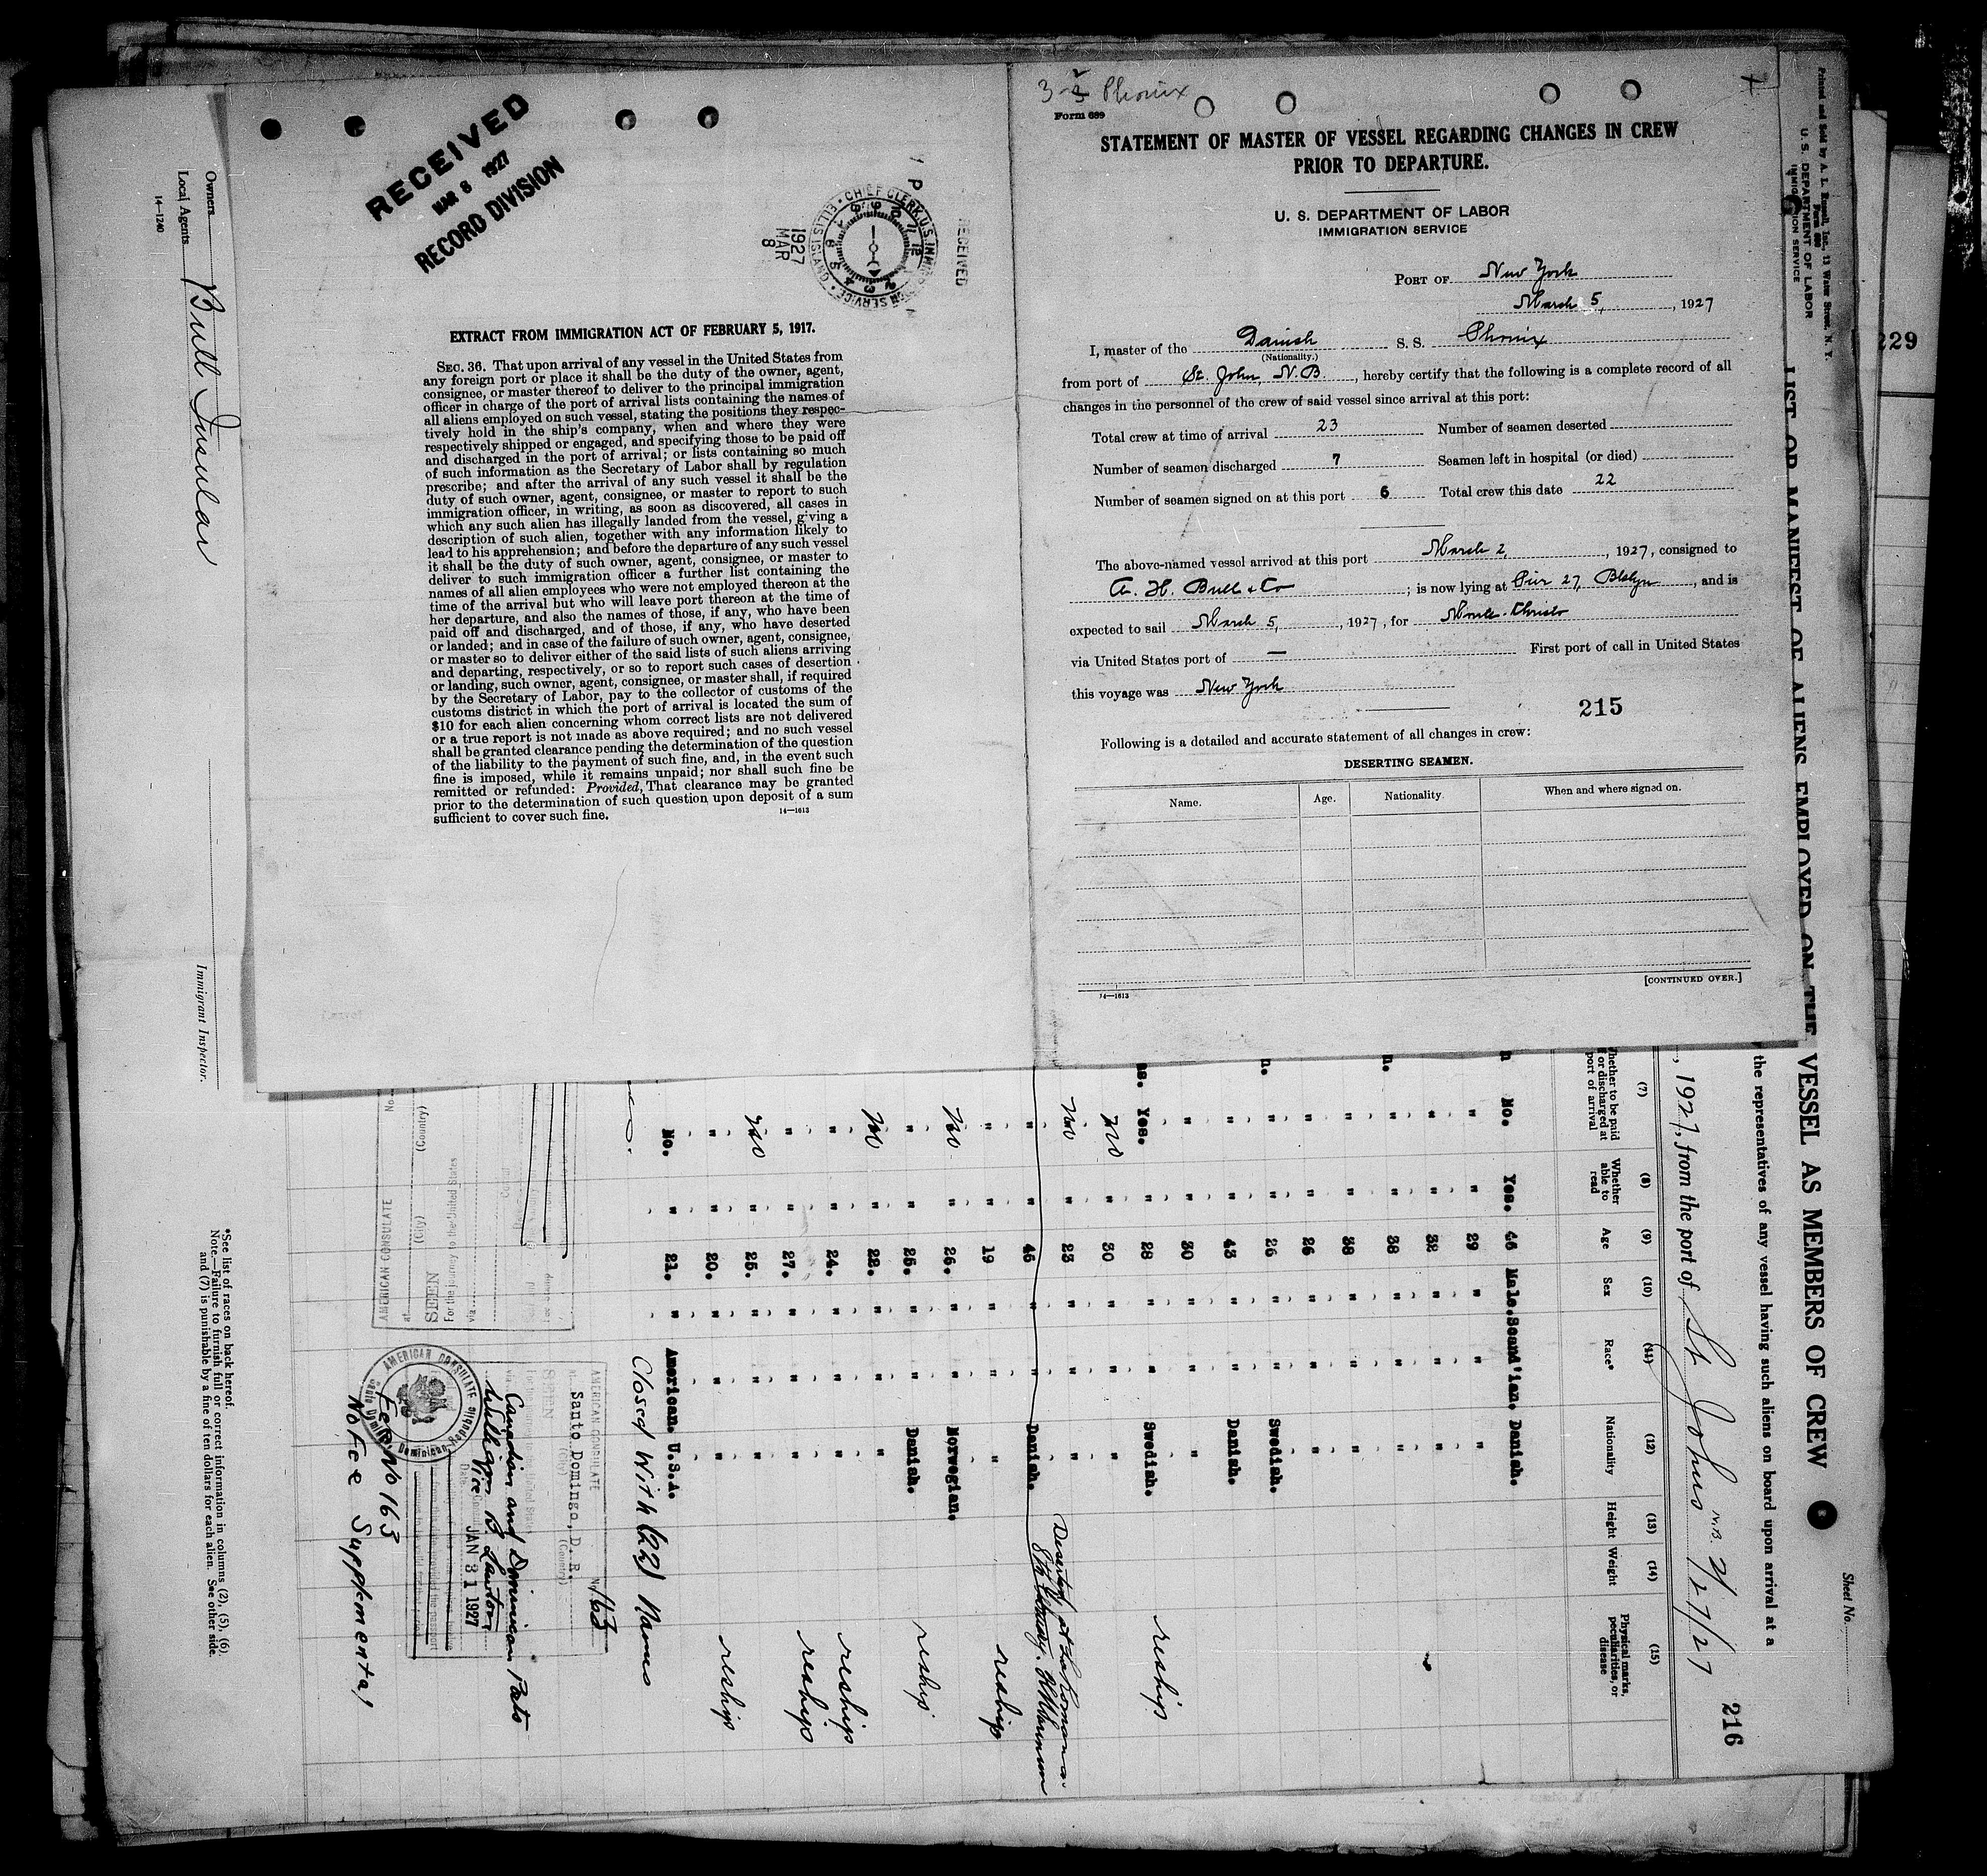 RECEIVED
MAR 8 1927
RECORD DIVISION
RECEIVED
CHIEF CLERK, U.S. IMMIGRATION SERVICE • ELLIS ISLAND
1927
MAR
8
EXTRACT FROM IMMIGRATION ACT OF FEBRUARY 5, 1917.
SEC. 36. That upon arrival of any vessel in the United States from
any foreign port or place it shall be the duty of the owner, agent,
consignee, or master thereof to deliver to the principal immigration
officer in charge of the port of arrival lists containing the names of
all aliens employed on such vessel, stating the positions they respec-
tively hold in the ship's company, when and where they were
respectively shipped or engaged, and specifying those to be paid off
and discharged in the port of arrival; or lists containing so much
of such information as the Secretary of Labor shall by regulation
prescribe; and after the arrival of any such vessel it shall be the
duty of such owner, agent, consignee, or master to report to such
immigration officer, in writing, as soon as discovered, all cases in
which any such alien has illegally landed from the vessel, giving a
description of such alien, together with any information likely to
lead to his apprehension; and before the departure of any such vessel
it shall be the duty of such owner, agent, consignee, or master to
deliver to such immigration officer a further list containing the
names of all alien employees who were not employed thereon at the
time of the arrival but who will leave port thereon at the time of
her departure, and also the names of those, if any, who have been
paid off and discharged, and of those, if any, who have deserted
or landed; and in case of the failure of such owner, agent, consignee,
or master so to deliver either of the said lists of such aliens arriving
and departing, respectively, or so to report such cases of desertion
or landing, such owner, agent, consignee, or master shall, if required
by the Secretary of Labor, pay to the collector of customs of the
customs district in which the port of arrival is located the sum of
$10 for each alien concerning whom correct lists are not delivered
or a true report is not made as above required; and no such vessel
shall be granted clearance pending the determination of the question
of the liability to the payment of such fine, and, in the event such
fine is imposed, while it remains unpaid; nor shall such fine be
remitted or refunded: Provided, That clearance may be granted
prior to the determination of such question upon deposit of a sum
sufficient to cover such fine.
14—1613
3- Phonix
Form 689
STATEMENT OF MASTER OF VESSEL REGARDING CHANGES IN CREW
PRIOR TO DEPARTURE.
U. S. DEPARTMENT OF LABOR
IMMIGRATION SERVICE
PORT OF New York
March 5, 1927
I, master of the Danish S. S. Phonix
(Nationality.)
from port of St. John, N.B., hereby certify that the following is a complete record of all
changes in the personnel of the crew of said vessel since arrival at this port:
Total crew at time of arrival 23 Number of seamen deserted
Number of seamen discharged 7 Seamen left in hospital (or died)
Number of seamen signed on at this port 6 Total crew this date 22
The above-named vessel arrived at this port March 2, 1927, consigned to
A. H. Bull & Co; is now lying at Pier 27, Bklyn, and is
expected to sail March 5, 1927, for Monte-Christo
via United States port of — First port of call in United States
this voyage was New York
215
Following is a detailed and accurate statement of all changes in crew:
DESERTING SEAMEN.
Name. Age. Nationality. When and where signed on.
[CONTINUED OVER.]
14—1613
229
Printed and Sold by A. L. Russell, Inc., 13 Water Street, N. Y.
Form 680
U. S. DEPARTMENT OF LABOR
IMMIGRATION SERVICE
Sheet No.
LIST OR MANIFEST OF ALIENS EMPLOYED ON THE VESSEL AS MEMBERS OF CREW
the representatives of any vessel having such aliens on board upon arrival at a
, 1927, from the port of St Johns N.B. 2/27/27
216
(7) (8) (9) (10) (11) (12) (13) (14) (15)
Whether to be paid off or discharged at port of arrival
Whether able to read
Age
Sex
Race*
Nationality
Height
Weight
Physical marks, peculiarities, or disease
No. Yes. 45 Male. Scand'ian. Danish.
" " 29 " " "
" " 32 " " "
" " 38 " " "
" " 38 " " "
" " 26 " " "
" " 26 " " Swedish.
" " 43 " " Danish.
" " 30 " " "
Yes. " 28 " " Swedish. reship
no " 30 " " "
no " 23 " " "
" " 46 " " Danish.
Deserted at La Romana
" " 19 " " " reship
no " 26. " " Norwegian.
" " 25. " " Danish. reship
no " 22. " " "
" " 24. " " " reship
" " 27. " " " reship
no " 25. " " "
" " 20. " " " reship
No. " 21. " American. U.S.A.
Closed With (22) Names
AMERICAN CONSULATE
No 163
at Santo Domingo, D. R.
(City) (Country)
SEEN
Canadian and Dominican Ports
William B. Lawton
Vice Consul
Date JAN 31 1927
AMERICAN CONSULATE
Santo Domingo, Dominican Republic
Fee No 163
No Fee Supplemental
AMERICAN CONSULATE
No.
at
(City) (Country)
SEEN
For the journey to the United States
via
*See list of races on back hereof.
Note.—Failure to furnish full or correct information in columns (2), (5), (6),
and (7) is punishable by a fine of ten dollars for each alien. See other side.
Immigrant Inspector.
Owners
Local Agents Bull Insular
14—1240